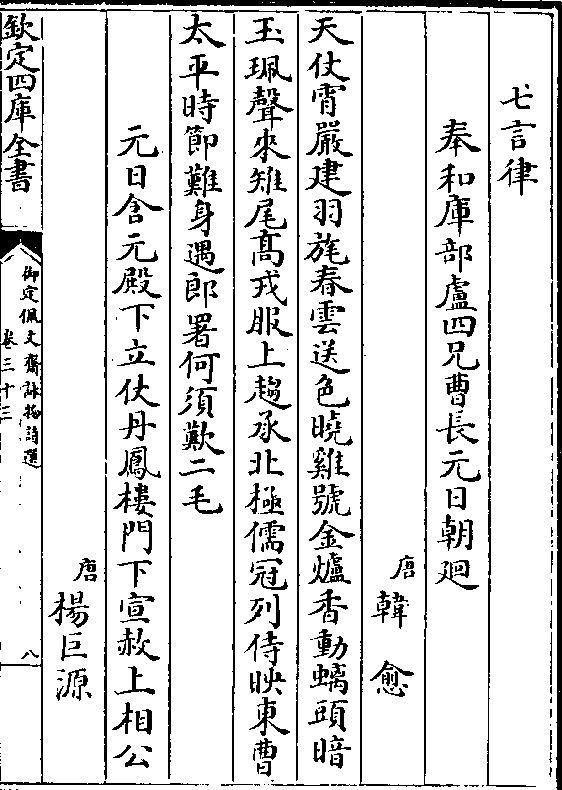 七言律
奉和庫部盧四兄曹長元日朝迴
唐韓愈
天仗宵嚴建羽旄春雲送色曉雞號金爐香動螭頭暗
玉珮聲來雉尾高戎服上趨承北極儒冠列侍映東曹
太平時節難身遇郎署何須歎二毛
元日含元殿下立仗丹鳳樓門下宣赦上相公
唐楊巨源
欽定四庫全書
御定佩文齋詠物詩選
卷三十三
八